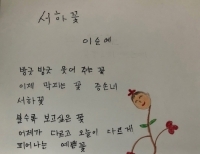 서하꽃
이순예
방긋 방긋 웃어 주는 꽃
이제 막 피는 꽃 증손녀
서하꽃
볼수록 보고싶은 꽃
어제가 다르고 오늘이 다르게
피어나는 예쁜 꽃